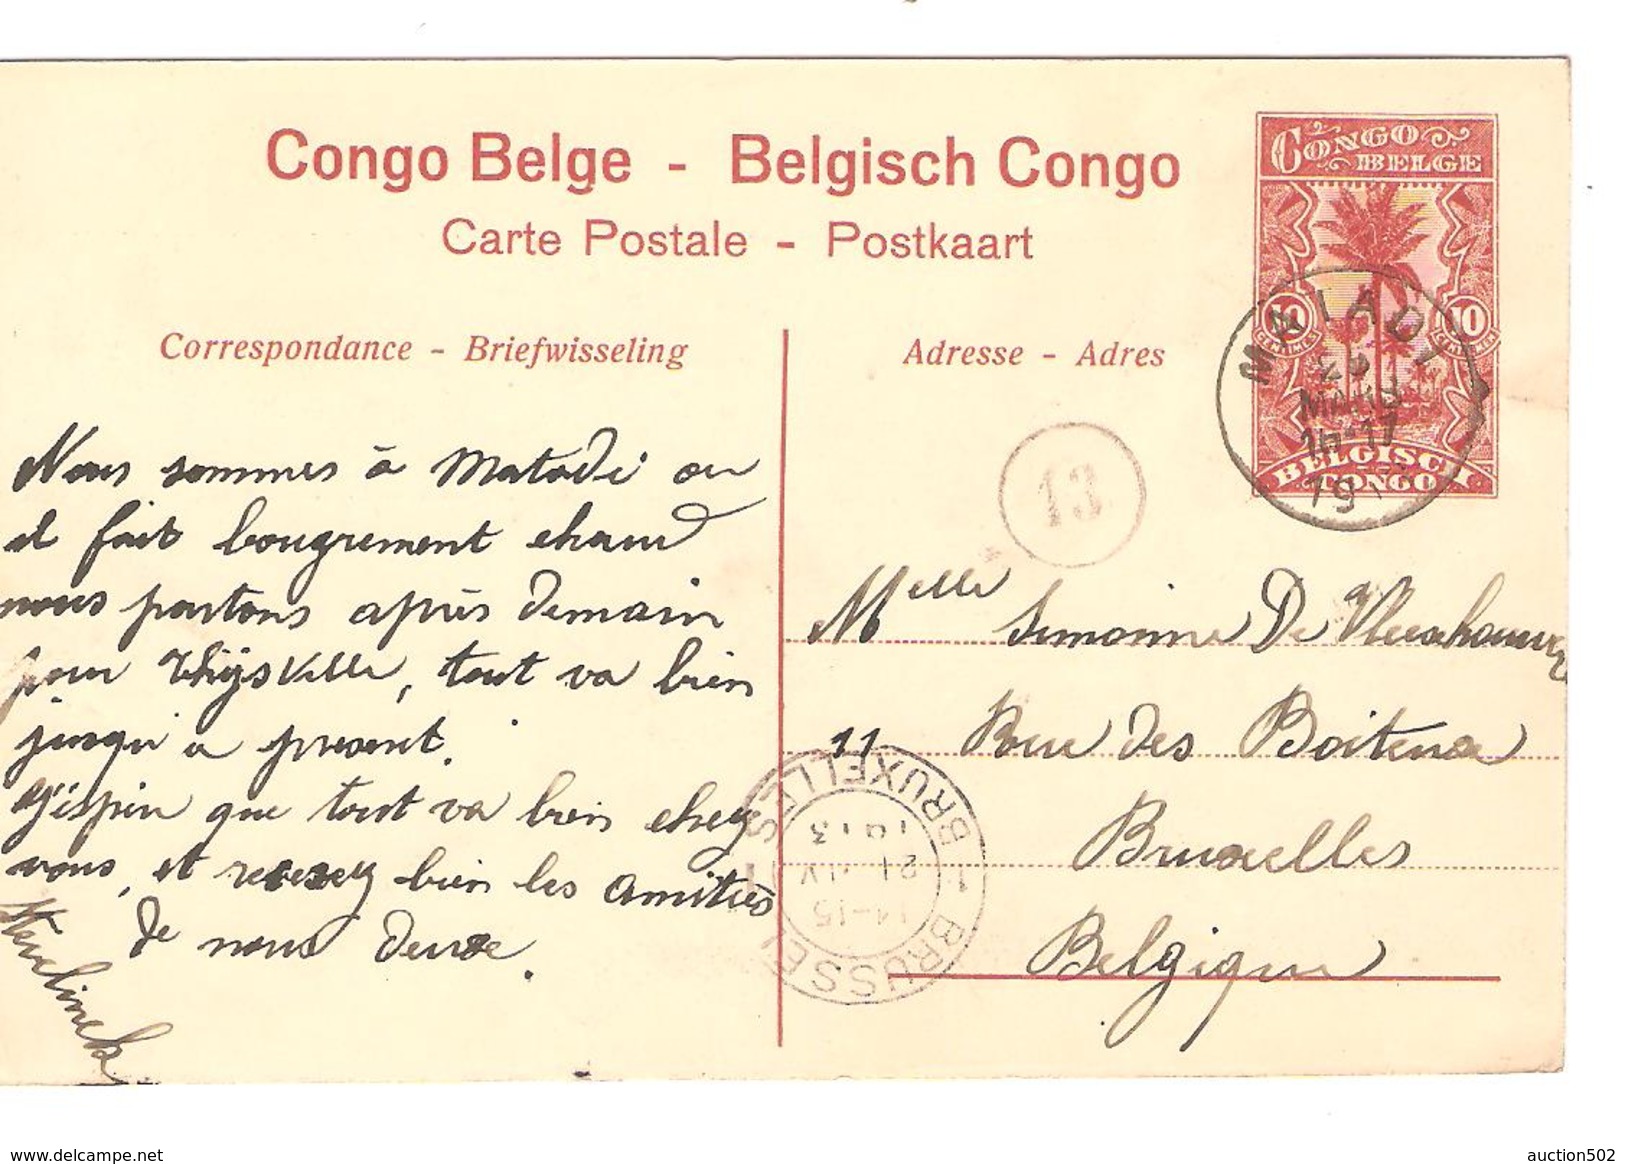 Congo Belge - Belgisch Congo
Carte Postale - Postkaart
CONGO
BELGE
10 CENTIMES
10 CENTIMEN
BELGISCH
CONGO
MATADI
MARS
16-17
Correspondance - Briefwisseling
Adresse - Adres
13
Nous sommes à Matadi ou
il fait bougrement chaud
nous partons après demain
pour Thijsville, tout va bien
jusqu'a present.
J'éspèr que tout va bien chez
vous, et recevez bien les amitiés
de nous deux.
Melle Simonne De Vleeschouwer
11 Rue des Boiteux
Bruxelles
Belgique
1 BRUXELLES
1913
21 IV
14-15
1 BRUSSEL
delcampe.net
auction502